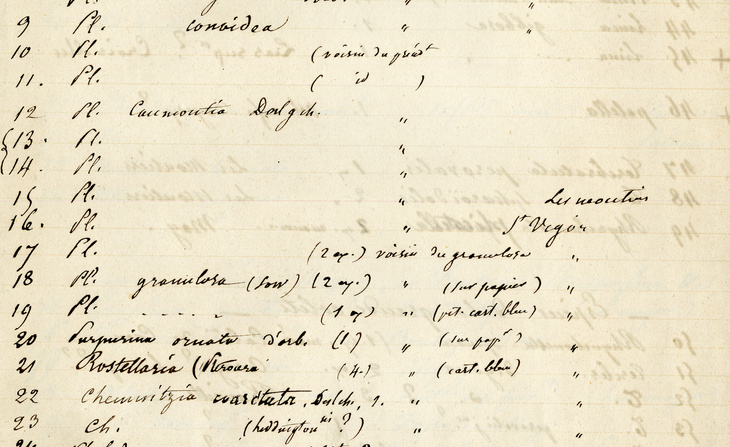 9 Pl. conoidea "
10 Pl. (voisin du précédt
11. Pl. ( id )
12 Pl. Caumontia Deslgch. "
13. Pl. "
14. Pl. "
15 Pl. " Les moutiers
16. Pl. " St Vigor
17 Pl. (2 ex.) voisin du granulosa "
18 Pl. granulosa (Sow) (2 ex.) " (sur papier) "
19 Pl. - - - - - (1 ex) " (pet. cart. bleu) "
20 Purpurina ornata d'orb. (1) " (sur papr) "
21 Rostellaria ( (4.) " (cart. bleu) "
22 Chemnitzia Deslch. 1. " "
23 Ch. (heddingtonsis ?) " "